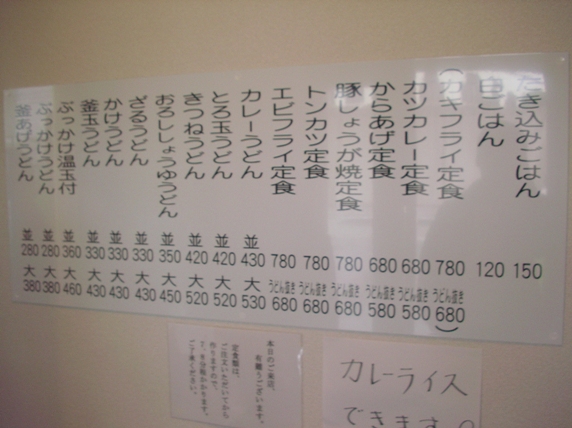 たき込みごはん 150
白ごはん 120
(カキフライ定食 780 うどん抜き 680)
カツカレー定食 680 うどん抜き 580
からあげ定食 680 うどん抜き 580
豚しょうが焼定食 780 うどん抜き 680
トンカツ定食 780 うどん抜き 680
エビフライ定食 780 うどん抜き 680
カレーうどん 並 430 大 530
とろ玉うどん 並 420 大 520
きつねうどん 並 420 大 520
おろししょうゆうどん 並 350 大 450
ざるうどん 並 330 大 430
かけうどん 並 330 大 430
釜玉うどん 並 330 大 430
ぶっかけ温玉付 並 360 大 460
ぶっかけうどん 並 280 大 380
釜あげうどん 並 280 大 380
本日のご来店、
有難うございます。
定食類は、
ご注文いただいてから
作りますので、
7、8分程かかります。
ご了承ください。
カレーライス
できます。